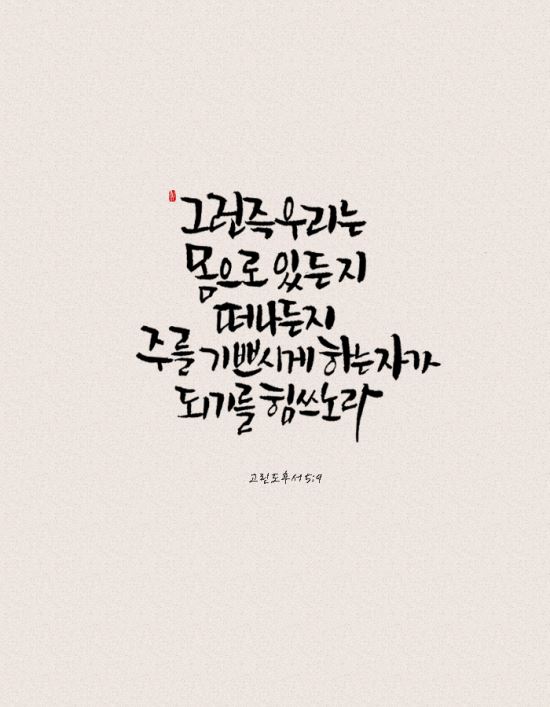 그런즉 우리는
몸으로 있든지
떠나든지
주를 기쁘시게 하는 자가
되기를 힘쓰노라
고린도후서 5:9